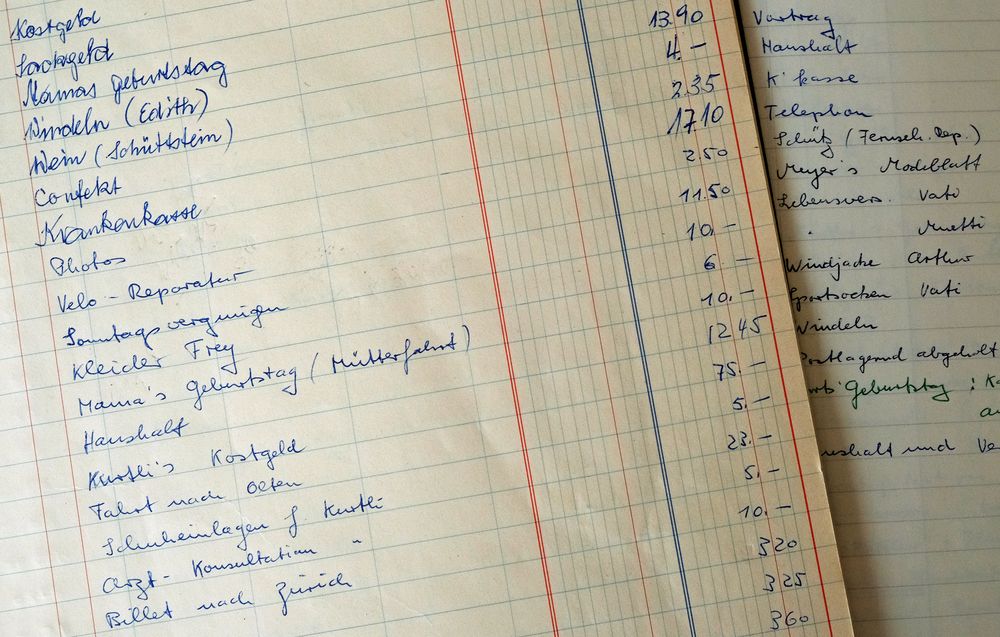 Kostgeld
Sackgeld
Mamas Geburtstag
Windeln (Edith)
Wein (Schüttstein)
Confekt
Krankenkasse
Photos
Velo - Reparatur
Sonntagsvergnügen
Kleider Frey
Mama's Geburtstag (Mütterfahrt)
Haushalt
Kurtli's Kostgeld
Fahrt nach Olten
Schuheinlagen f Kurtli
Arzt - Konsultation "
Billet nach Zürich
13.90
4.-
2.35
17.10
2.50
11.50
10.-
6.-
10.-
12.45
75.-
5.-
23.-
5.-
10.-
3.20
3.25
3.60
Vortrag
Haushalt
K'kasse
Telephon
Schütz (Fernseh. Rep.)
Meyer's Modeblatt
Lebensvers. Vati
" Muetti
Windjacke Arthur
Sportsocken Vati
Windeln
Postlagernd abgeholt
Geburtstag :
und